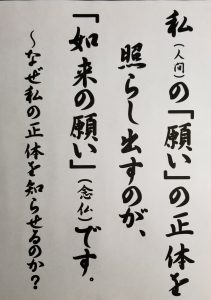 私(人間)の「願い」の正体を
照らし出すのが、
「如来の願い」(念仏)です。
～なぜ私の正体を知らせるのか？